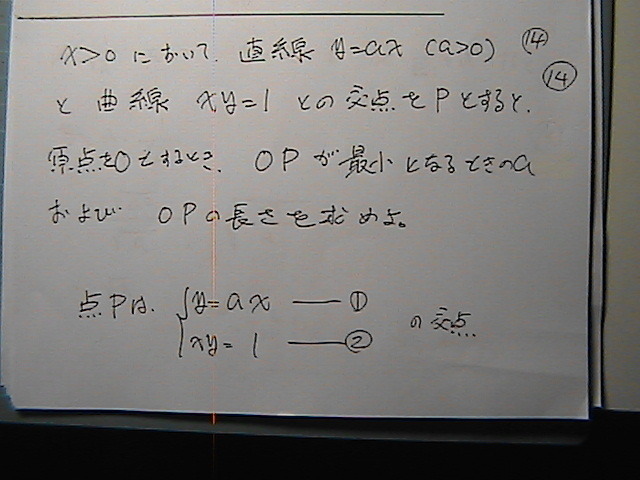 x>0 において、直線 y=ax (a>0) ⑭
⑭
と 曲線 xy=1 との交点をPとすると、
原点をOとするとき、OPが最小となるときのa
および OPの長さを求めよ。
点Pは、 { y=ax ― ①
xy=1 ― ② の交点